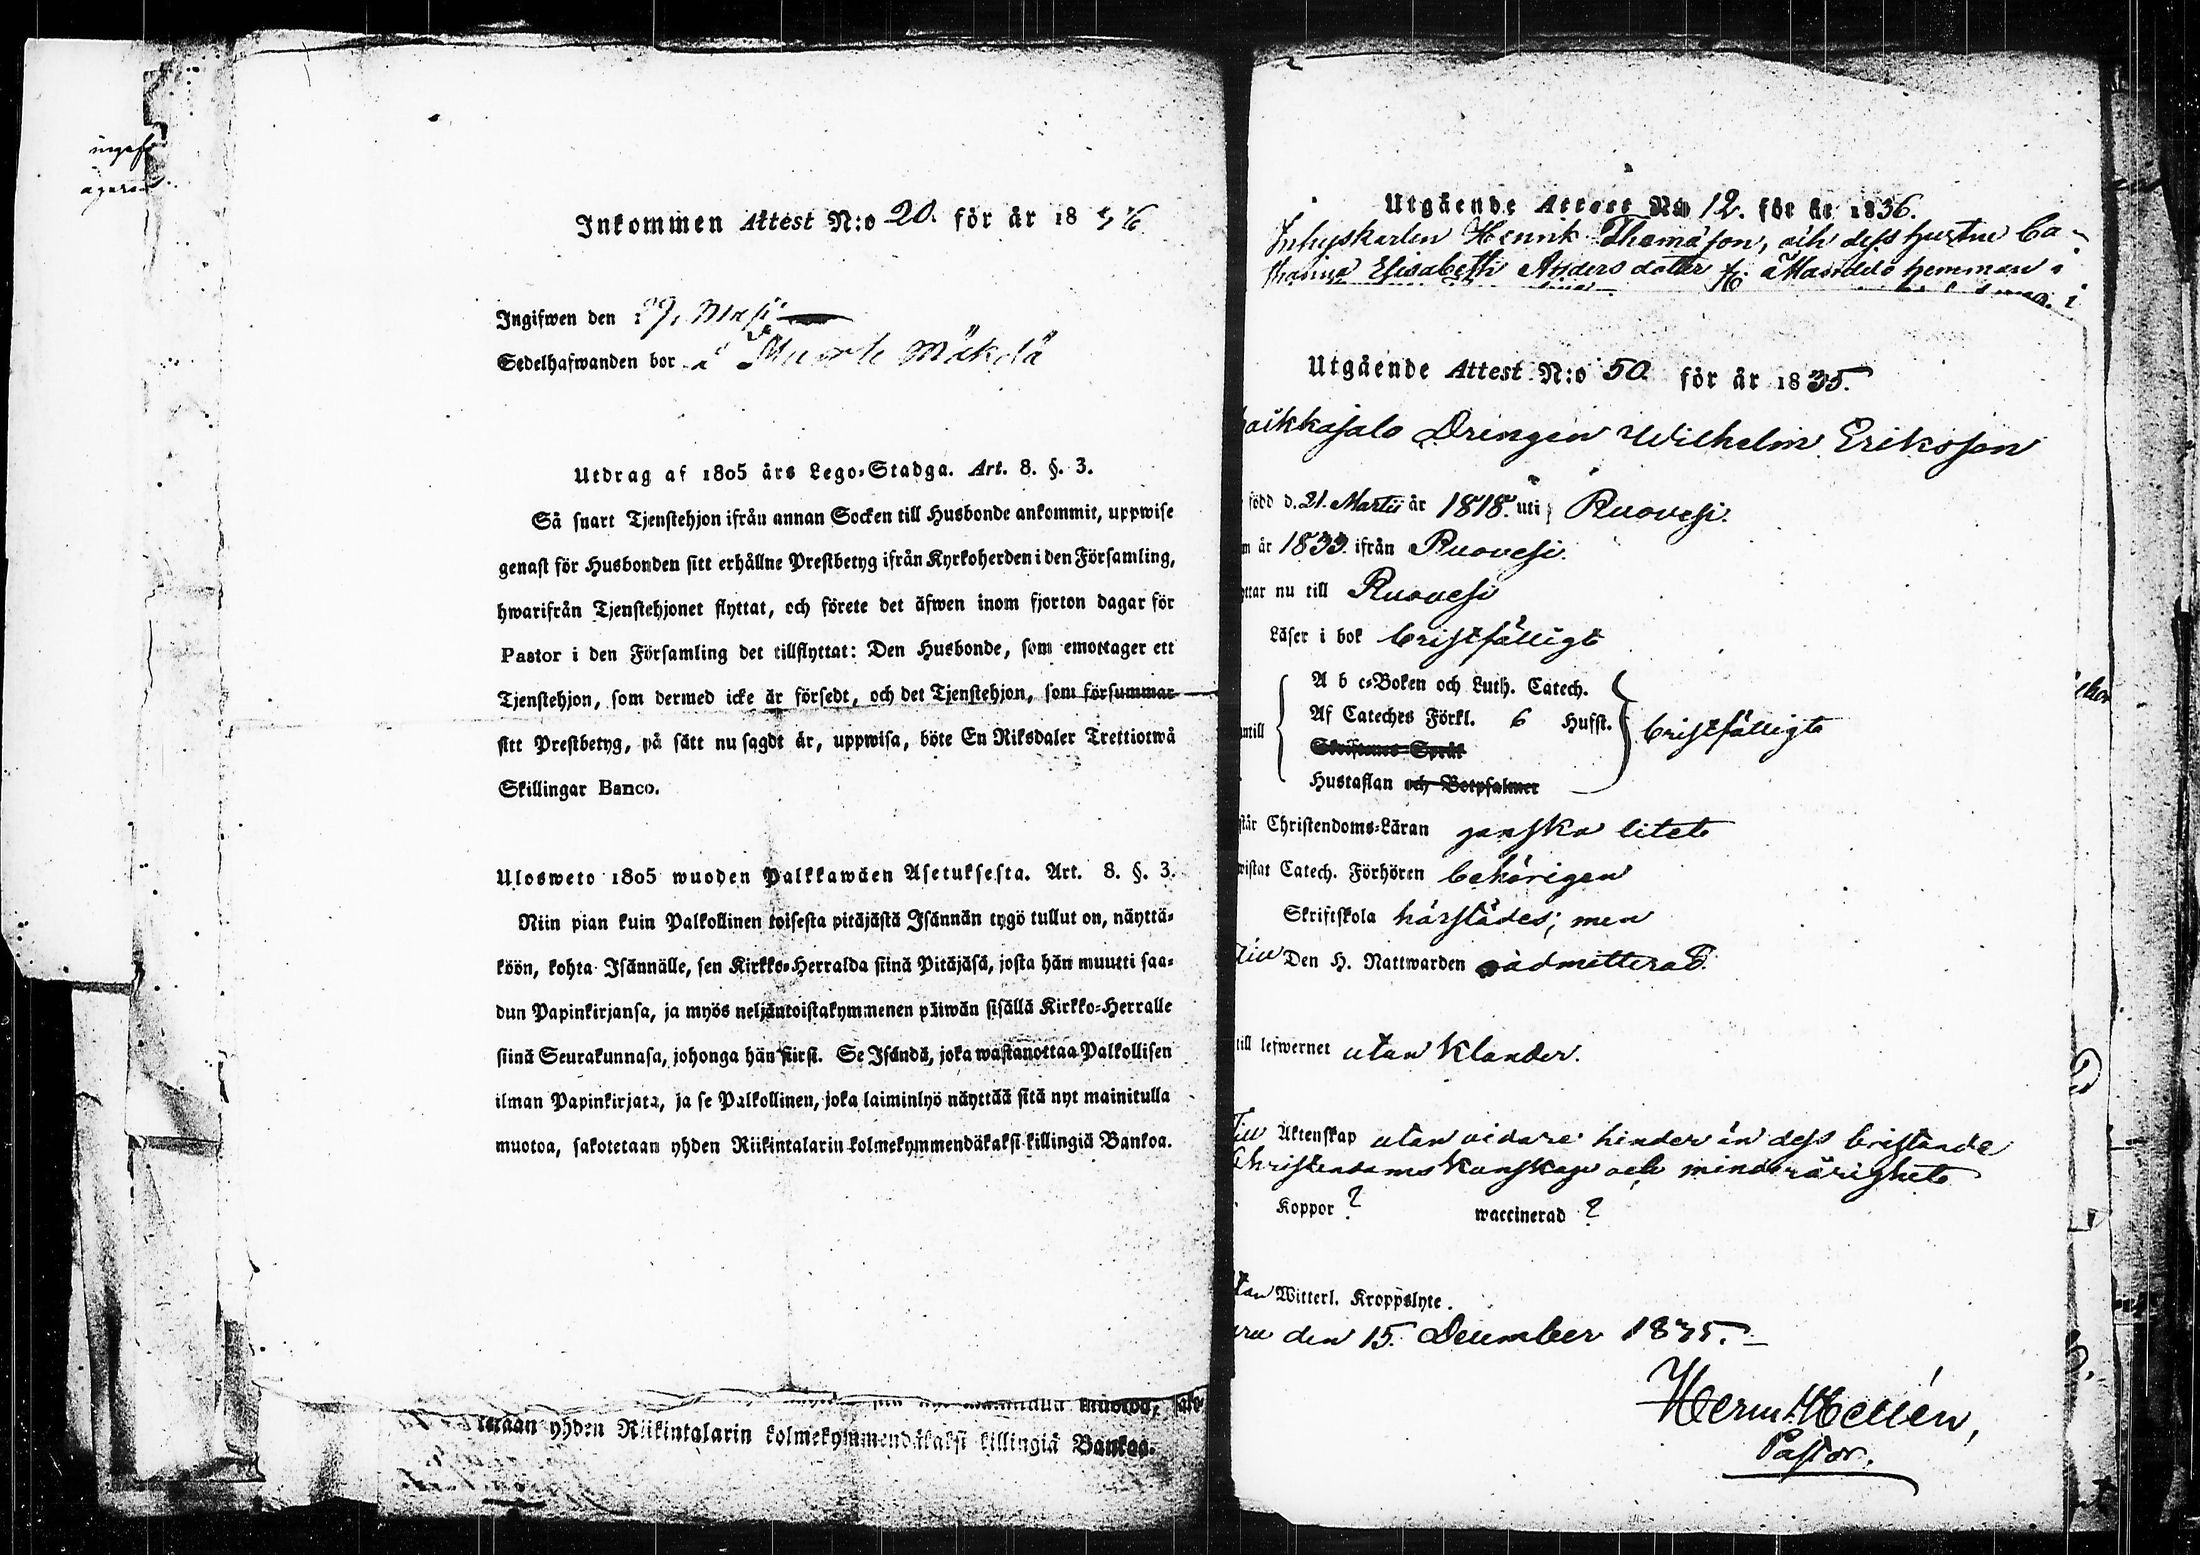 Inkommen Attest N:o 20. för år 1836
Ingifwen den 29. Maji
Sedelhafwanden bor i Muorla Mäkelä
Utdrag af 1805 års Lego-Stadga. Art. 8. §. 3.
Så snart Tjenstehjon ifrån annan Socken till Husbonde ankommit, uppwise
genast för Husbonden sitt erhållne Prestbetyg ifrån Kyrkoherden i den Församling,
hwarifrån Tjenstehjonet flyttat, och förete det äfwen inom fjorton dagar för
Pastor i den Församling det tillflyttat: Den Husbonde, som emottager ett
Tjenstehjon, som dermed icke är försedt, och det Tjenstehjon, som försummar
sitt Prestbetyg, på sätt nu sagdt är, uppwisa, böte En Riksdaler Trettiotwå
Skillingar Banco.
Ulosweto 1805 wuoden Palkkawäen Asetuksesta. Art. 8. §. 3.
Niin pian kuin Palkollinen toisesta pitäjästä Isännän tygö tullut on, näyttä-
köön, kohta Isännälle, sen Kirkko-Herralda siinä Pitäjäsä, josta hän muutti saa-
dun Papinkirjansa, ja myös neljäntoistakymmenen päiwän sisällä Kirkko-Herralle
siinä Seurakunnasa, johonga hän siirsi. Se Isändä, joka wastanottaa Palkollisen
ilman Papinkirjata, ja se Palkollinen, joka laiminlyö näyttää sitä nyt mainitulla
muotoa, sakotetaan yhden Riikintalarin kolmekymmendäkaksi killingiä Bankoa.
muotoa, sako-
tetaan yhden Riikintalarin kolmekymmendäkaksi killingiä Bankoa.
Utgående Attest No 12. för år 1836.
Inhyskarlen Henrik Thomasson, och dess hustru Ca-
tharina Elisabeth Andersdotter fr. Mandelo hemman i
Utgående Attest N:o 50. för år 1835.
Drengen Wilhelm Eriksson
född d. 21. Martii år 1818. uti Ruovesi.
år 1833. ifrån Ruovesi.
ttar nu till Ruovesi
Läser i bok bristfälligt
A b c-Boken och Luth. Catech.
Af Cateches Förkl. 6 Hufst. bristfälligt
Skriftenes Språk
Hustaflan och Botpsalmer
står Christendoms-Läran ganska litet
wistat Catech. Förhören behörigen
Skriftskola härstädes; men
till Den H. Nattwarden oadmitterad.
till lefwernet utan klander.
Till Äktenskap utan vidare hinder än dess bristande
Christendoms Kunskap och minderårighet
Koppor ? waccinerad ?
utan Witterl. Kroppslyte.
den 15. December 1835.
Herm. Hellén,
Pastor.